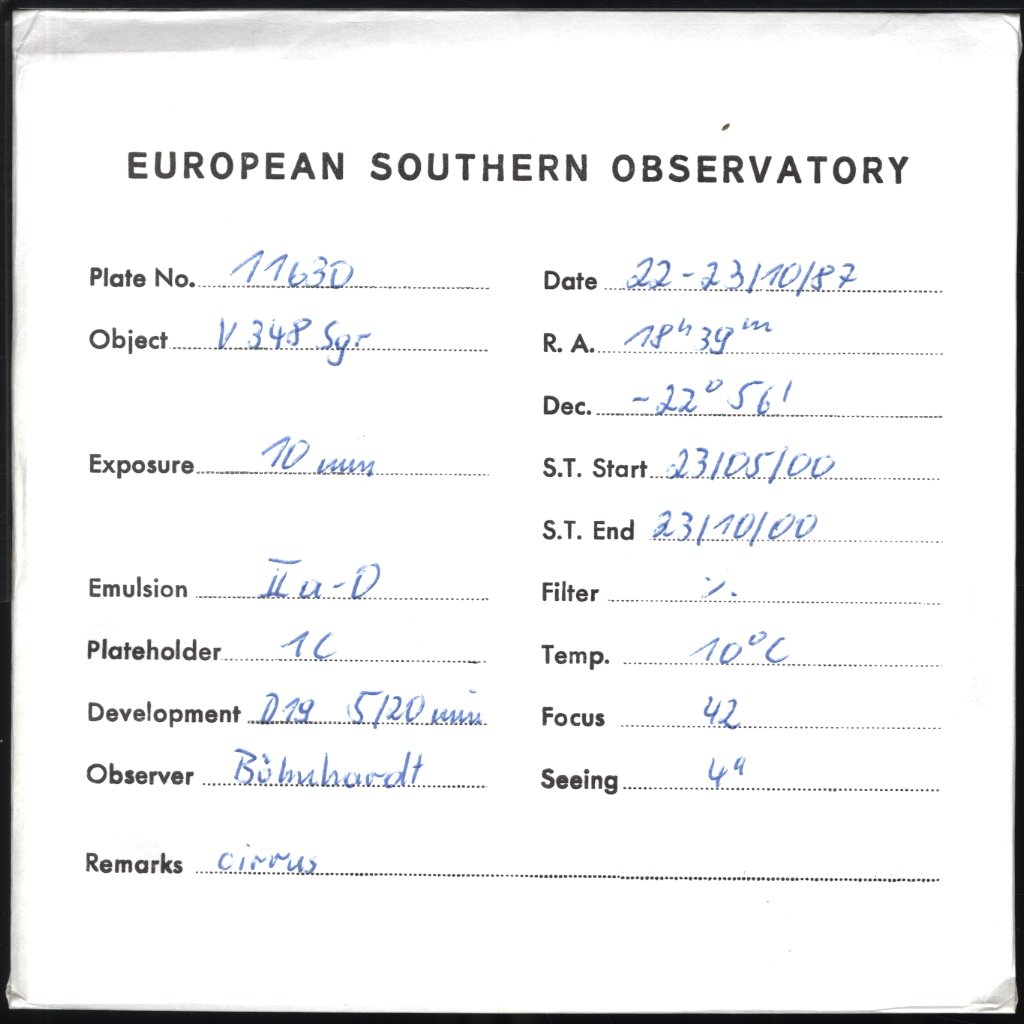 EUROPEAN SOUTHERN OBSERVATORY
Plate No. 11630
Date 22-23/10/87
Object V 348 Sgr
R. A. 18h 39m
Dec. -22° 56'
Exposure 10 min
S.T. Start 23/05/00
S.T. End 23/10/00
Emulsion IIa-D
Filter ./.
Plateholder 1C
Temp. 10°C
Development D19 5/20 min
Focus 42
Observer Böhnhardt
Seeing 4"
Remarks cirrus